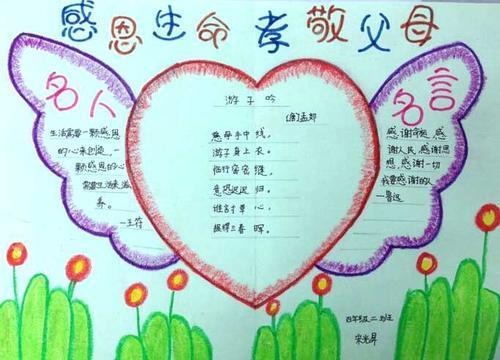 感恩生命 孝敬父母
名人
生活需要一颗感恩
的心来创造,一
颗感恩的心
需要生活来滋
养。
—王符
游子吟
(唐)孟郊
慈母手中线,
游子身上衣。
临行密密缝,
意恐迟迟归。
谁言寸草心,
报得三春晖。
名言
感谢命运,感
谢人民,感谢思
想,感谢一切
我要感谢的人
—鲁迅
四年级二班